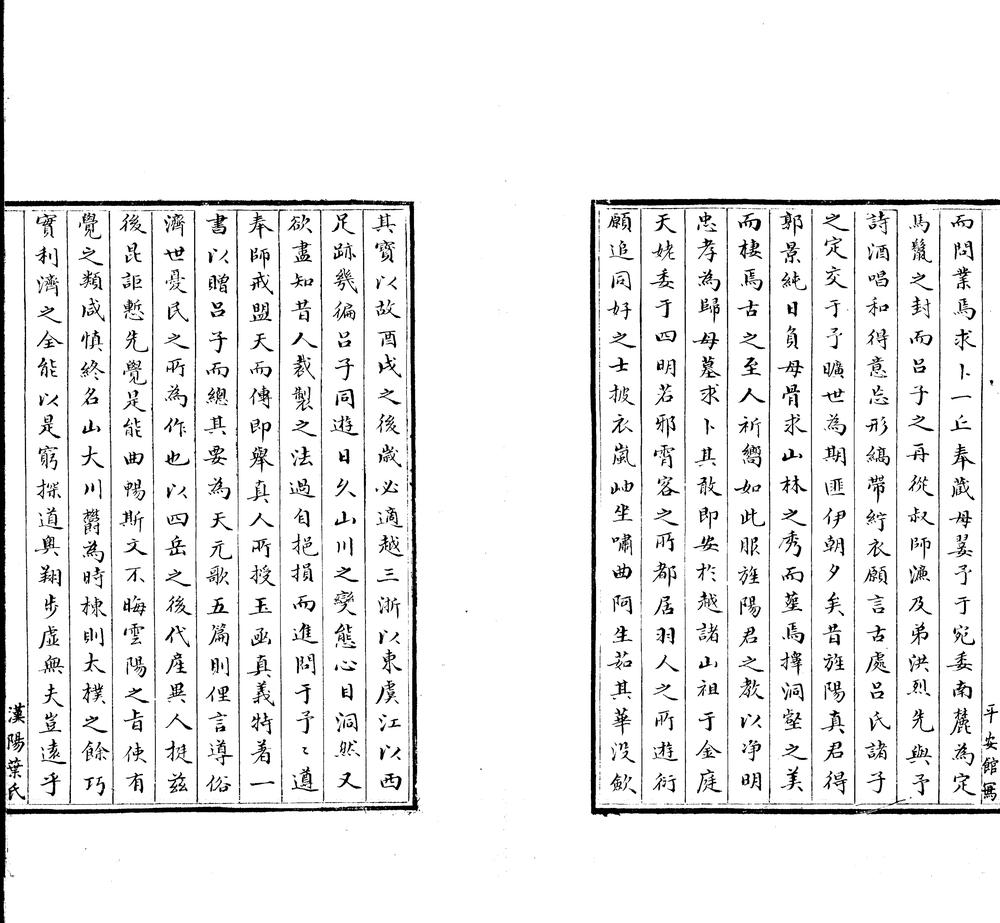 而問業焉求卜一丘奉藏母㛐予于宛委南麓為定
馬鬣之封而呂子之再從叔師濂及弟洪烈先與予
詩酒唱和得意忘形縞帶紵衣願言古處呂氏諸子
之定交于予曠世為期匪伊朝夕矣昔旌陽真君得
郭景純日負母骨求山林之秀而塟焉擇洞壑之美
而棲焉古之至人祈嚮如此服旌陽君之教以净明
忠孝為歸母墓求卜其敢即安於越諸山祖于金庭
天姥委于四明若邪霄客之所都居羽人之所遊衍
願追同好之士披衣嵐岫坐嘯曲阿生茹其華没飲
平安館寫
其寶以故酉戌之後歲必適越三浙以東虞江以西
足跡幾徧呂子同遊日久山川之變態心目洞然又
欲盡知昔人裁製之法過自挹損而進問于予〻遵
奉師戒盟天而傳即舉真人所授玉函真義特著一
書以贈呂子而總其要為天元歌五篇則俚言導俗
濟世憂民之所為作也以四岳之後代產異人挺兹
後昆詎慙先覺足能曲暢斯文不晦雲陽之旨使有
覺之類咸慎終名山大川欝為時棟則太樸之餘巧
實利濟之全能以是窮探道奥翔步虛無夫豈遠乎
漢陽葉氏